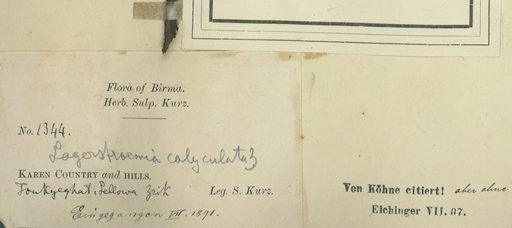 Flora of Birma.
Herb. Sulp. Kurz.
No. 1344.
Lagerstroemia calyculata Kz
KAREN COUNTRY and HILLS,
Toukyeghat, Leg. S. Kurz.
Eingegangen VII. 1891.
Von Köhne citiert! aber ohne
Eichinger VII. 07.